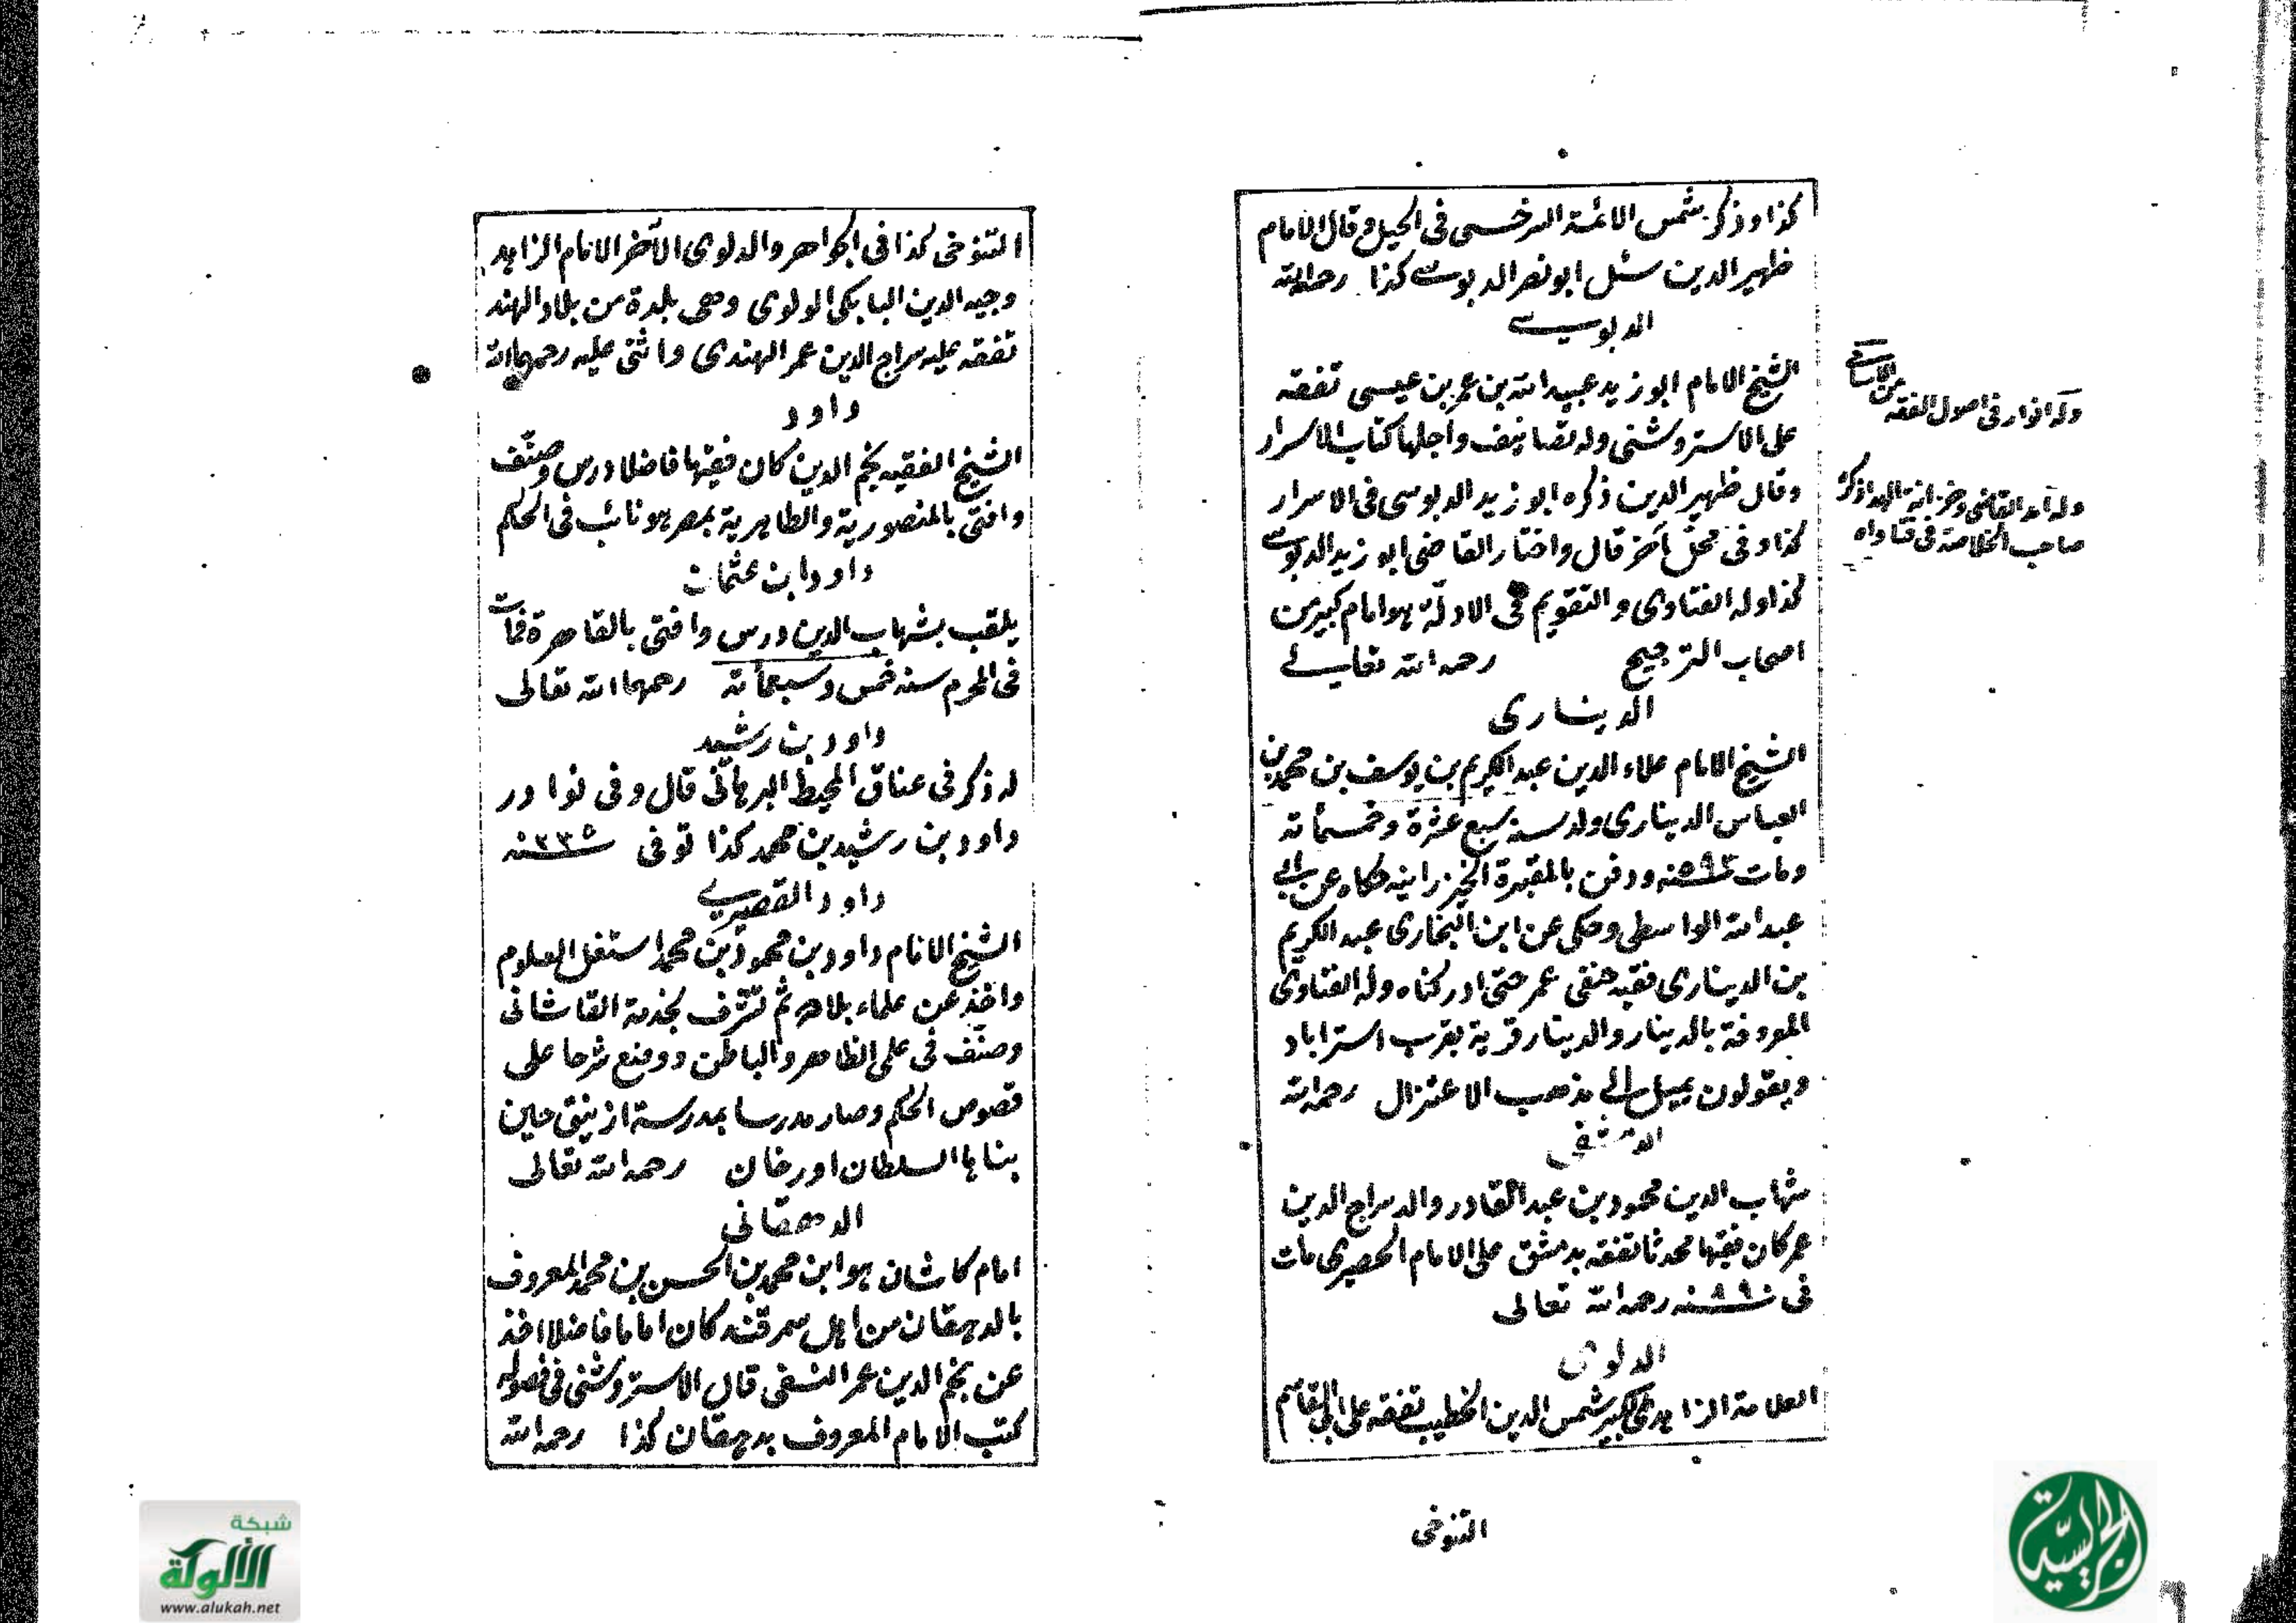 كذا وذكر شمس الائمة السرخسى فى الحيل وقال الامام
ظهير الدين سئل ابو نصر الدبوسى كذا رحمه الله
الدبوسى
الشيخ الامام ابو زيد عبيد الله بن عمر بن عيسى تفقه
على الاستروشنى وله تصانيف واجلها كتاب الاسرار
وقال ظهير الدين ذكره ابو زيد الدبوسى فى الاسرار
كذا وفى محل آخر قال واختار القاضى ابو زيد الدبوسى
كذا وله الفتاوى والتقويم فى الادلة هو امام كبير من
اصحاب الترجيح رحمه الله تعالى
الدينارى
الشيخ الامام علاء الدين عبد الكريم بن يوسف بن محمد بن
العباس الدينارى ولد سنة سبع عشرة وخمسمائة
ومات سنة ٥٩٣ ودفن بالمقبرة الخيزرانيه حكاه عن ابى
عبد الله الواسطى وحكى عن ابن البخارى عبد الكريم
بن الدينارى فقيه حنفى عمر حتى ادركناه وله الفتاوى
المعروفة بالدينار والدينار قرية بقرب استراباد
ويقولون يميل الى مذهب الاعتزال رحمه الله
الدمشقى
شهاب الدين محمود بن عبد القادر والد سراج الدين
عمر كان فقيها محدثا تفقه بدمشق على الامام الحصيرى مات
فى سنة رحمه الله تعالى
الدلوى
العلامة الزاهد الكبير شمس الدين الخطيب تفقه على ابى القاسم
التنوخى
وله انوار فى اصول الفقه
وله امد القاضى وخزانة الهدا ذكره
صاحب الخلاصة فى فتاواه
التنوخى كذا فى الجواهر والدلوى الآخر الامام الزاهد
وجيه الدين البابكى الولوى وهى بلدة من بلاد الهند
تفقه عليه سراج الدين عمر الهندى واثنى عليه رحمهما الله
داود
الشيخ الفقيه نجم الدين كان فقيها فاضلا درس وصنّف
وافتى بالمنصورية والظاهرية بمصر هو نائب فى الحكم
داود ابن عثمان
يلقب بشهاب الدين درس وافتى بالقاهرة فمات
فى المحرم سنه خمس وسبعمائة رحمهما الله تعالى
داود بن رشيد
له ذكر فى عتاق المحيط البرهانى قال وفى نوادر
داود بن رشيد بن محمد كذا توفى سنة ٢٣٥
داود القصيرى
الشيخ الامام داود بن محمود بن محمد اشتغل العلوم
واخذ عن علماء بلاده ثم تشرف بخدمة القاشانى
وصنّف فى علمى الظاهر والباطن ووضع شرحا على
فصوص الحكم وصار مدرسا بمدرسة ازنيق حين
بناها السلطان اورخان رحمه الله تعالى
الدهقانى
امام كاشان هو ابن محمد بن الحسن بن محمد المعروف
بالدهقان من اهل سمرقند كان اماما فاضلا اخذ
عن نجم الدين عمر النسفى قال الاستروشنى فى فصوله
كتب الامام المعروف بدهقان كذا رحمه الله
شبكة
الألوكة
www.alukah.net